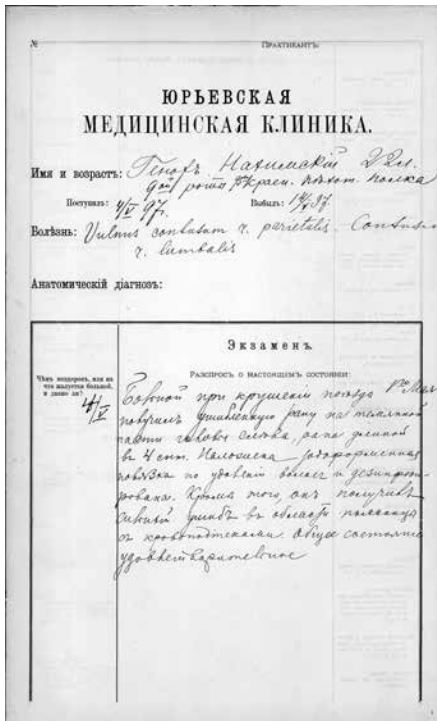 № Практикантъ:
ЮРЬЕВСКАЯ
МЕДИЦИНСКАЯ КЛИНИКА.
Имя и возрастъ: 22 л.
9ой роты пѣхот. полка
Поступилъ: 4/V 97. Выбылъ: 14/V 97.
Болѣзнь: Vulnus contusum r. parietalis. Contusio
r. lumbalis
Анатомическій діагнозъ:
Экзаменъ.
Разспросъ о настоящемъ состояніи:
Чѣмъ нездоровъ, или на
что жалуется больной,
и давно ли?
4/V
Больной при крушеніи поѣзда 1го Мая
получилъ ушибленную рану на темянной
части головы слѣва, рана длиной
въ 4 cnm. Наложена іодоформенная
повязка по удаленіи волосъ и дезинфи-
рована. Кромѣ того, онъ получилъ
сильный ушибъ въ области поясницы
съ кровоподтеками. Общее состояніе
удовлетворительное